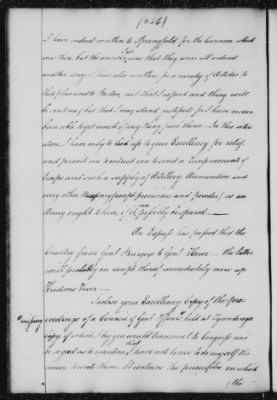 (226)
I have indeed written to Springfield for the Cannon which
was there, but the answer I was that they were all ordered
another way. I have also written for a variety of Articles to
this place and to Boston, not that I expect and things will
be sent me, but that I may stand justified, for I have never
been able to get much of any thing from thence. In this situ-
ation, I have only to look up to your Excellency for relief,
and permit me to entreat you to send a reinforcement of
troops and such a supply of Artillery, Ammunition and
every other Necessary (except provisions and powder) as an
Army ought to have, if it can possibly be spared —
An Express has passed thro the
Country from Genl. Burgoyne to Genl. Howe — the latter
will probably on receipt thereof immediately move up
Hudsons River —
I inclose your Excellency Copy of the pro-
ceedings of a Council of Genl. Officers held at Ticonderoga
copy of which I beg you would transmit to Congress and
be so good as to mention that I have not time to do myself the
honor to write them. It contains the principles on which
the